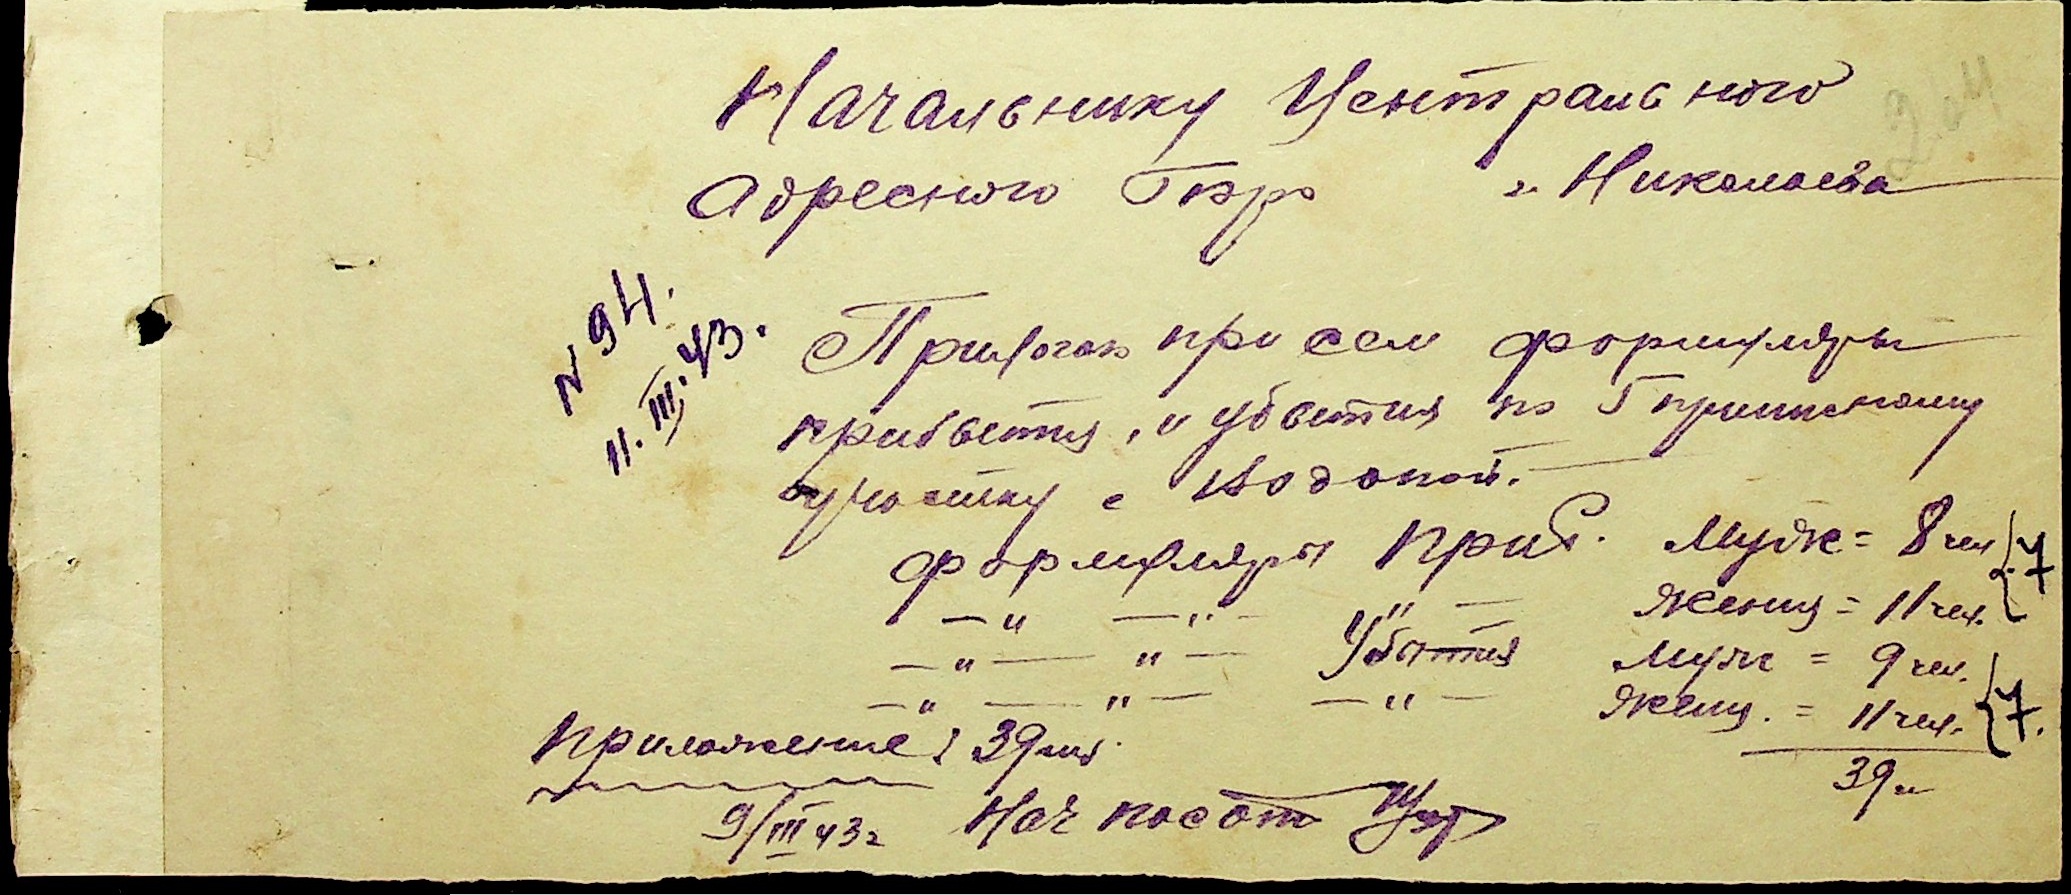 Начальнику Центрального
Адресного Бюро г. Николаева
264
N 94.
11.III.43.
Прилагаю при сем формуляры
прибытия, и убытия по
участку с Водопой.
формуляры приб. Муж = 8 чел } 7
—"— —"— —"— Женщ = 11 чел.
—"— —"— Убытия Муж = 9 чел. } 7.
—"— —"— —"— Женщ. = 11 чел.
39
Приложение: 39
9/III 43г Нач пасп